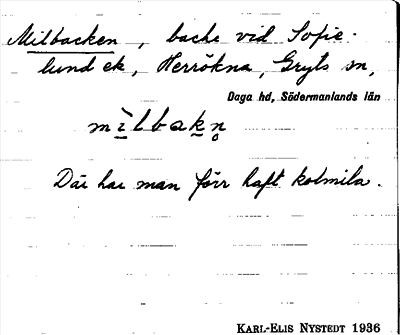 Milbacken, backe vid Sofie-
lund ek, Herrökna, Gryts sn,
Daga hd, Södermanlands län
mìlbakn̥
Där har man förr haft kolmila.
KARL-ELIS NYSTEDT 1936